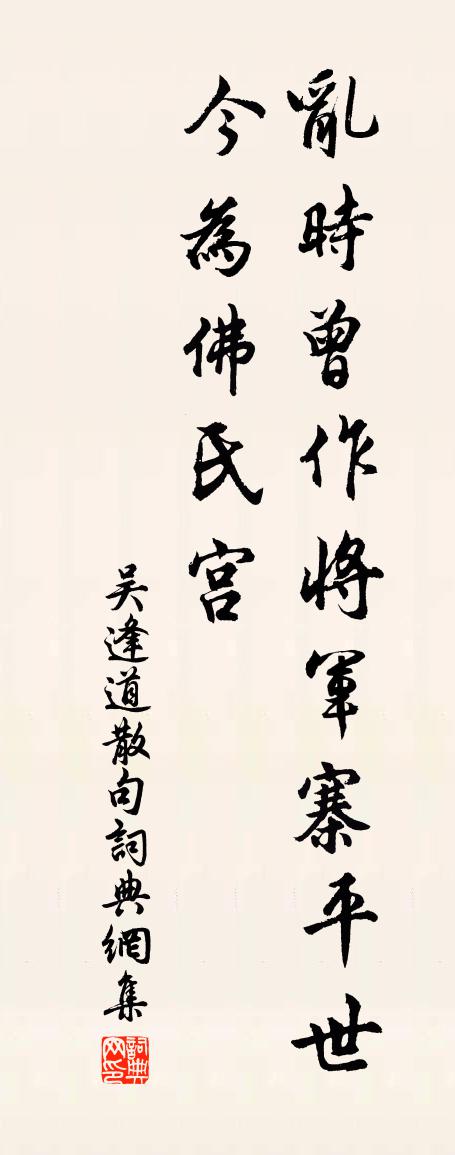 亂時曾作將軍寨平世
今為佛氏宮
吴逢道散句詞典網集
詞典网印